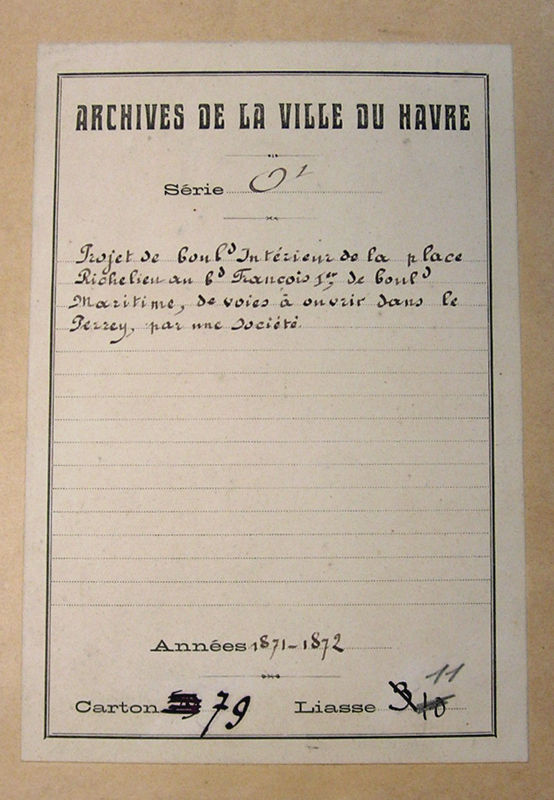 ARCHIVES DE LA VILLE DU HAVRE
Série O¹
Projet de boulᵈ Intérieur de la place
Richelieu au bᵈ François 1ᵉʳ, de boulᵈ
Maritime, de voies à ouvrir dans le
Perrey, par une Société.
Années 1871-1872
Carton 79 Liasse 11